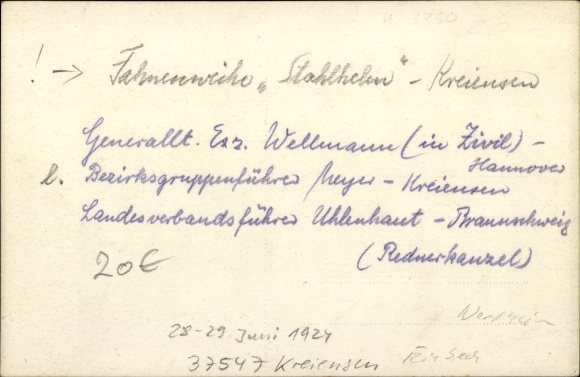 ! → Fahnenweihe „Stahlhelm" - Kreiensen
Generallt. Exz. Wellmann (in Zivil) - Hannover
l. Bezirksgruppenführer Meyer - Kreiensen
Landesverbandsführer Uhlenhaut - Braunschweig
(Rednerkanzel)
20€
28-29 Juni 1924
37547 Kreiensen